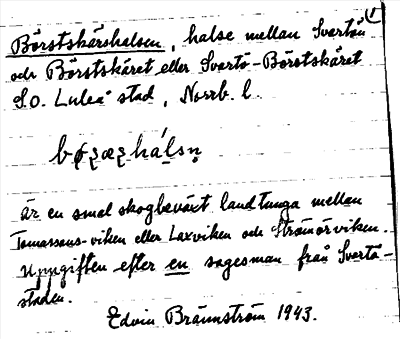 Börstskärshalsen, halse mellan Svartön
och Börstskäret eller Svartö-Börstskäret
S.O. Luleå stad, Norrb. l.
är en smal skogbeväxt landtunga mellan
Tomassans-viken eller Laxviken och Strömörviken.
Uppgiften efter en sagesman från Svartö-
staden.
Edvin Brännström 1943.